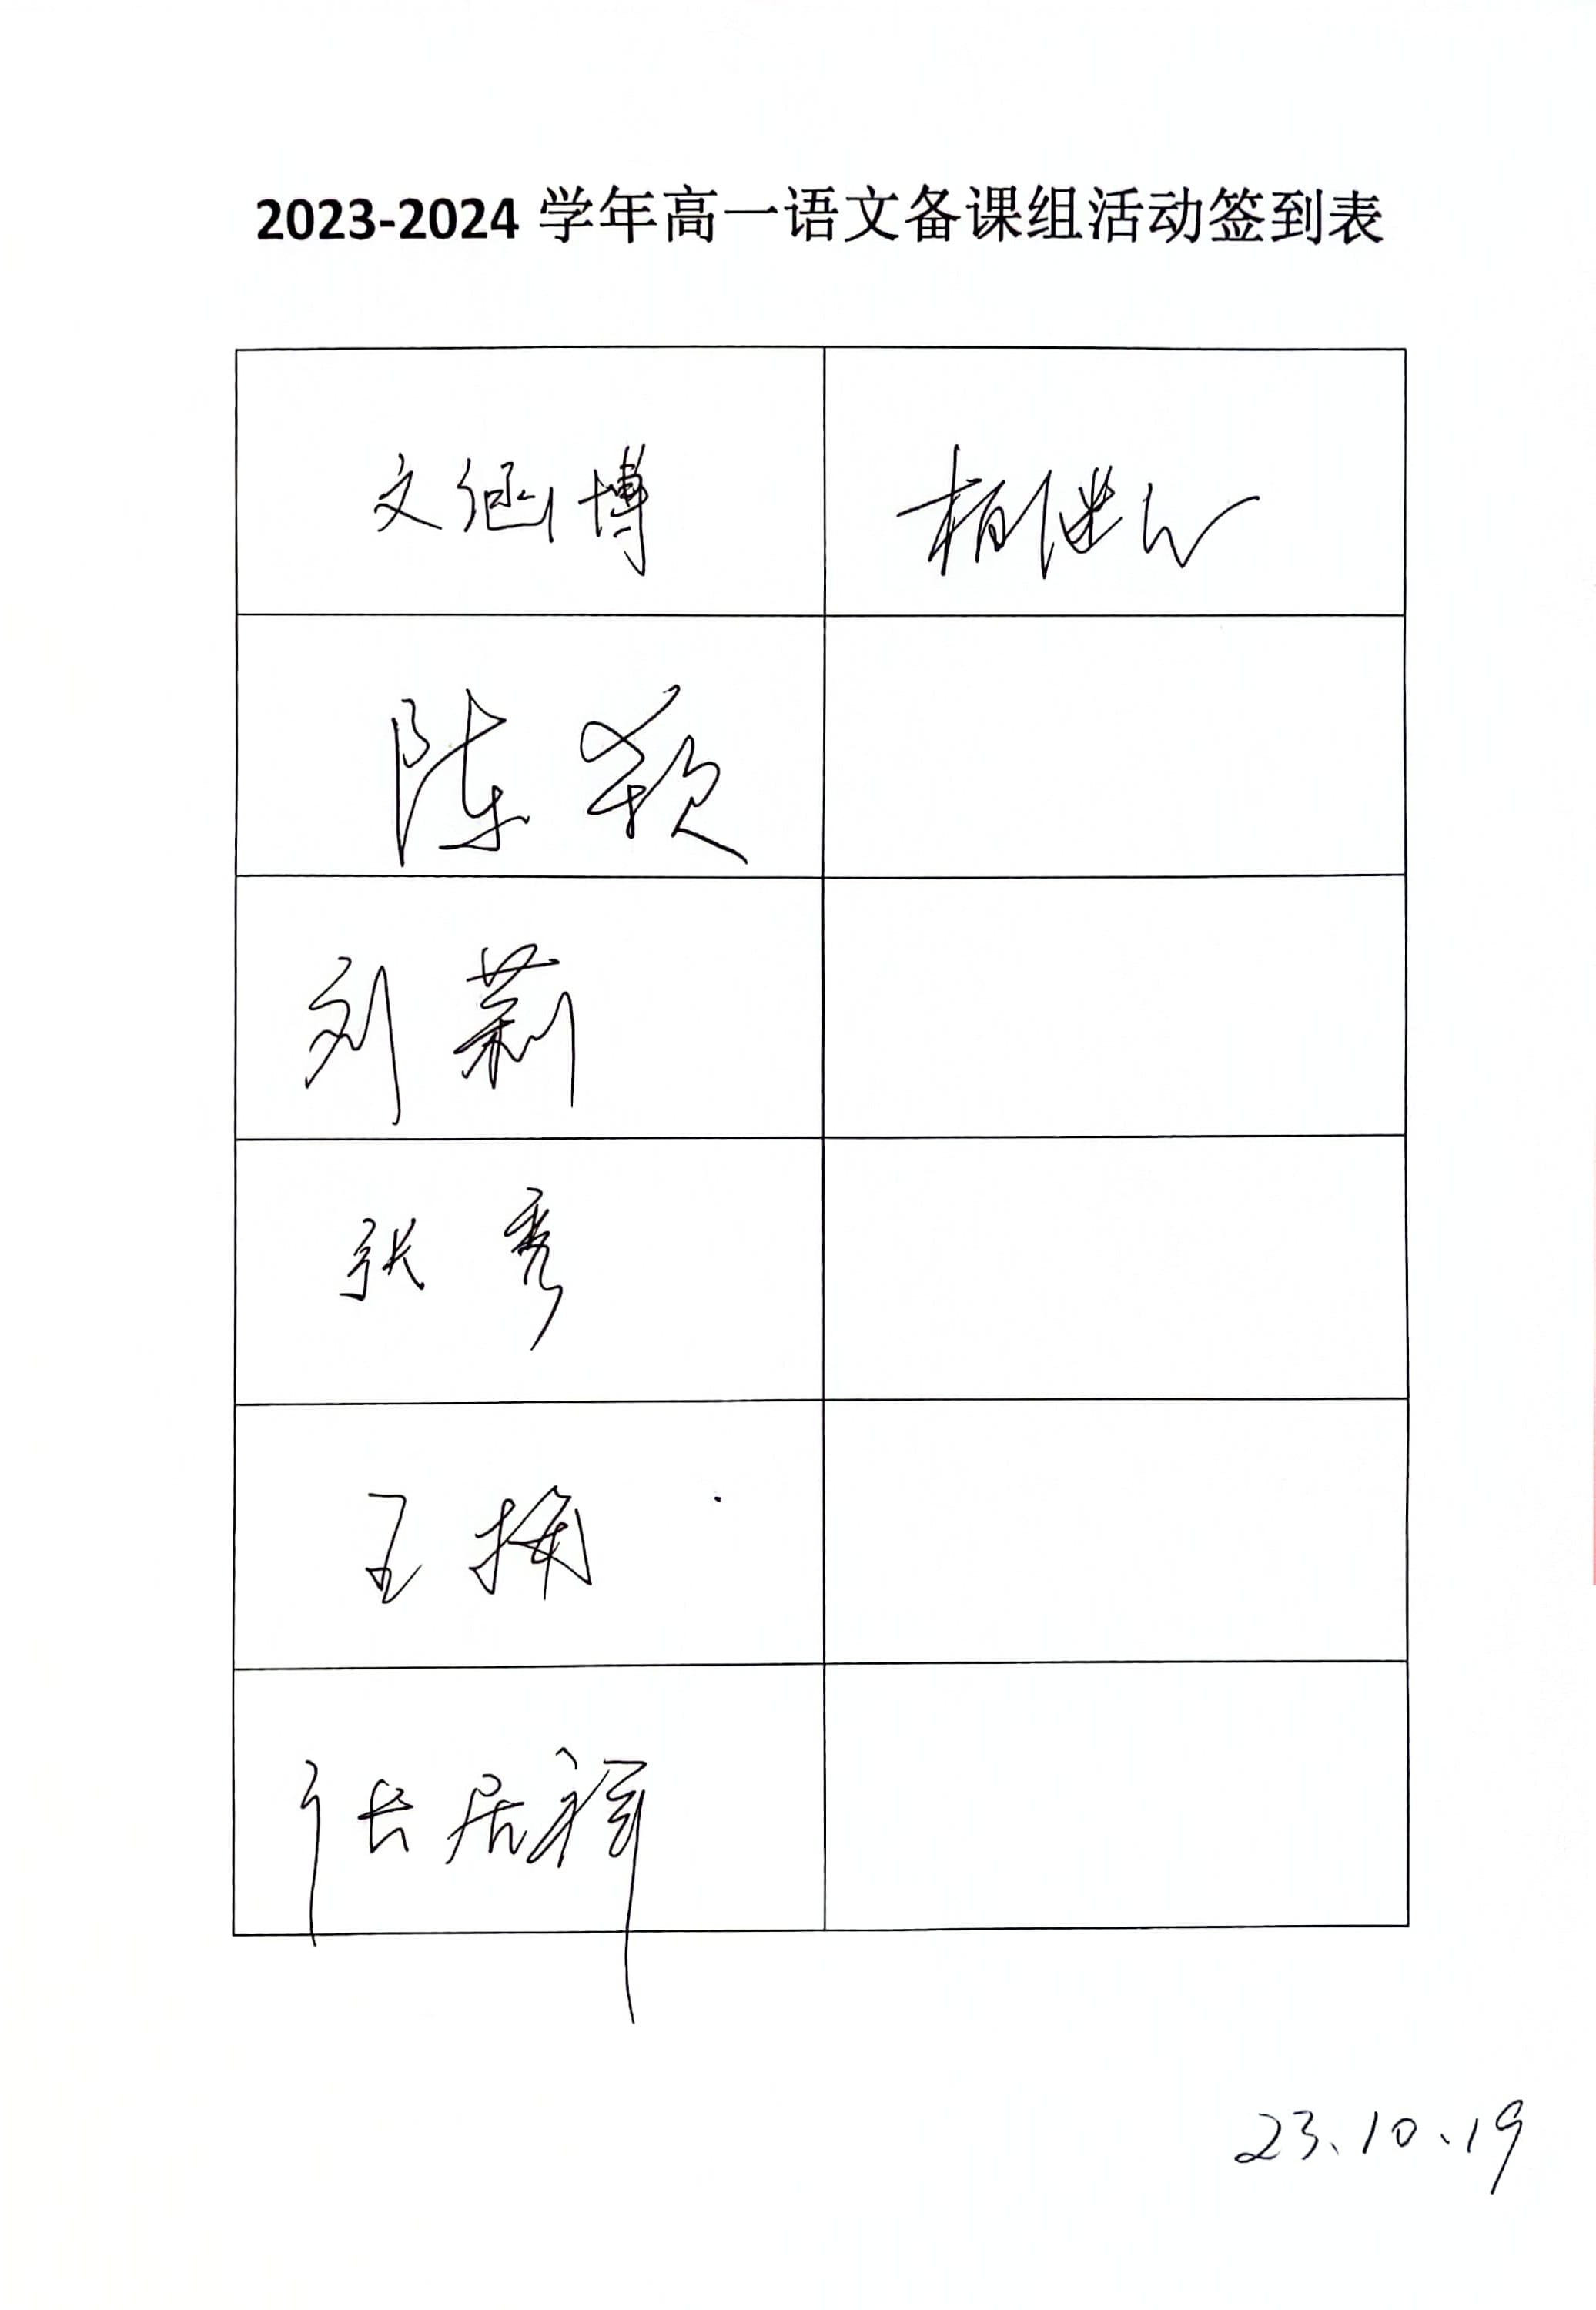 2023-2024 学年高一语文备课组活动签到表
文涵博
陈颖
刘莉
张秀
王梅
张居祥
23.10.19